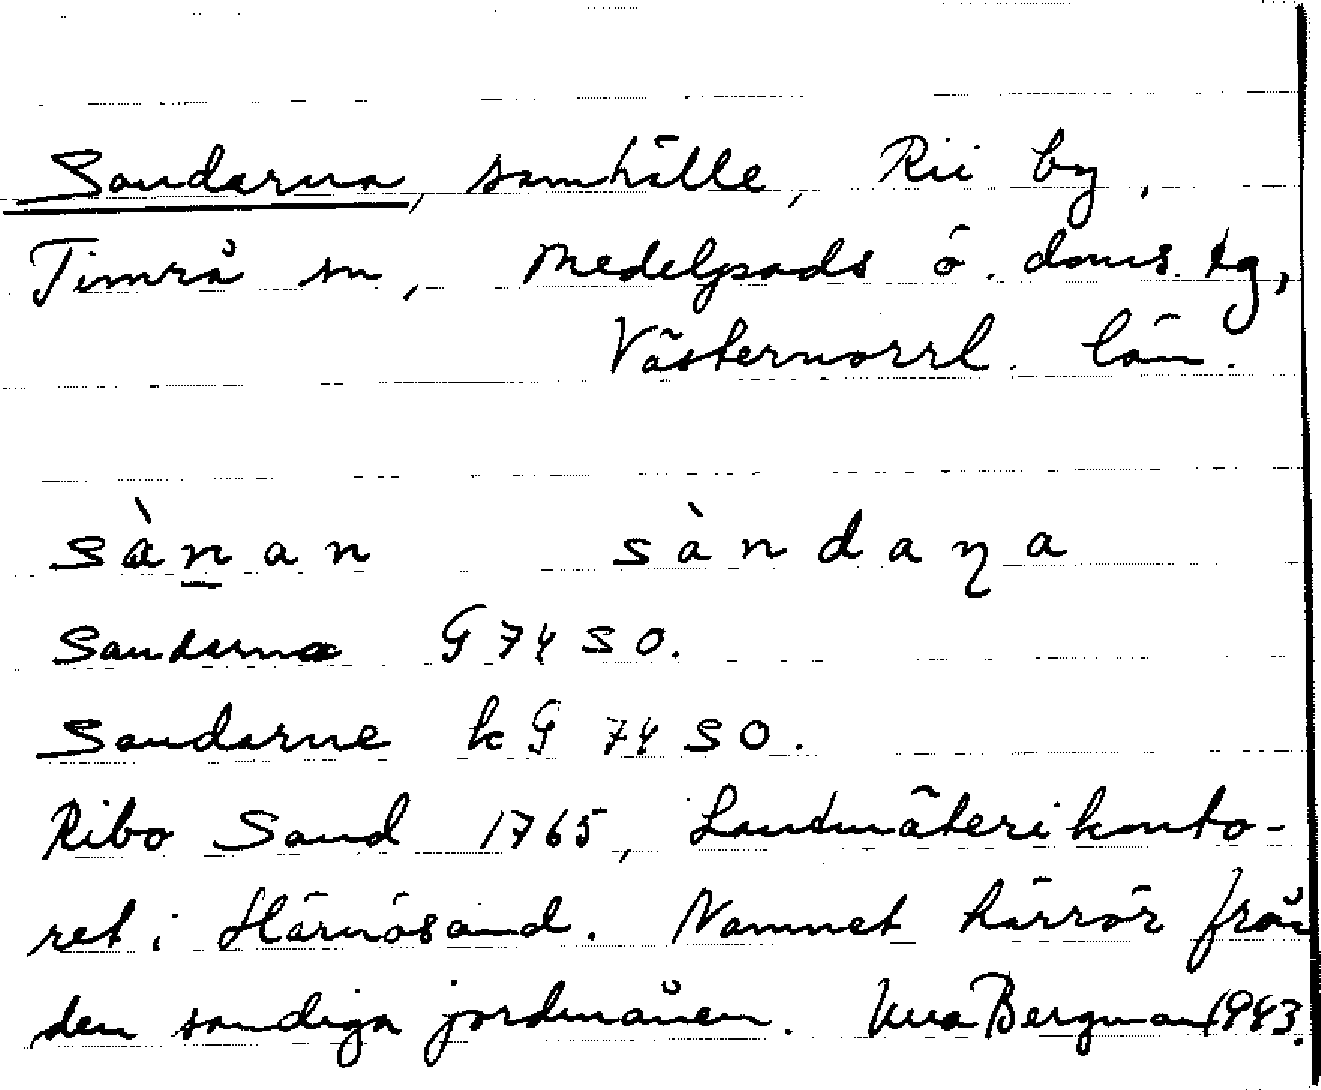 Sandarna, samhälle, Rii by,
Timrå sn, Medelpads ö. doms. tg,
Västernorrl. län.
sànan sàndaɳa
Sandarna G 74 SO.
Sandarne k G 74 SO.
Ribo Sand 1765, Lantmäterikonto-
ret i Härnösand. Namnet härrör från
den sandiga jordmånen. Bergman 1943.